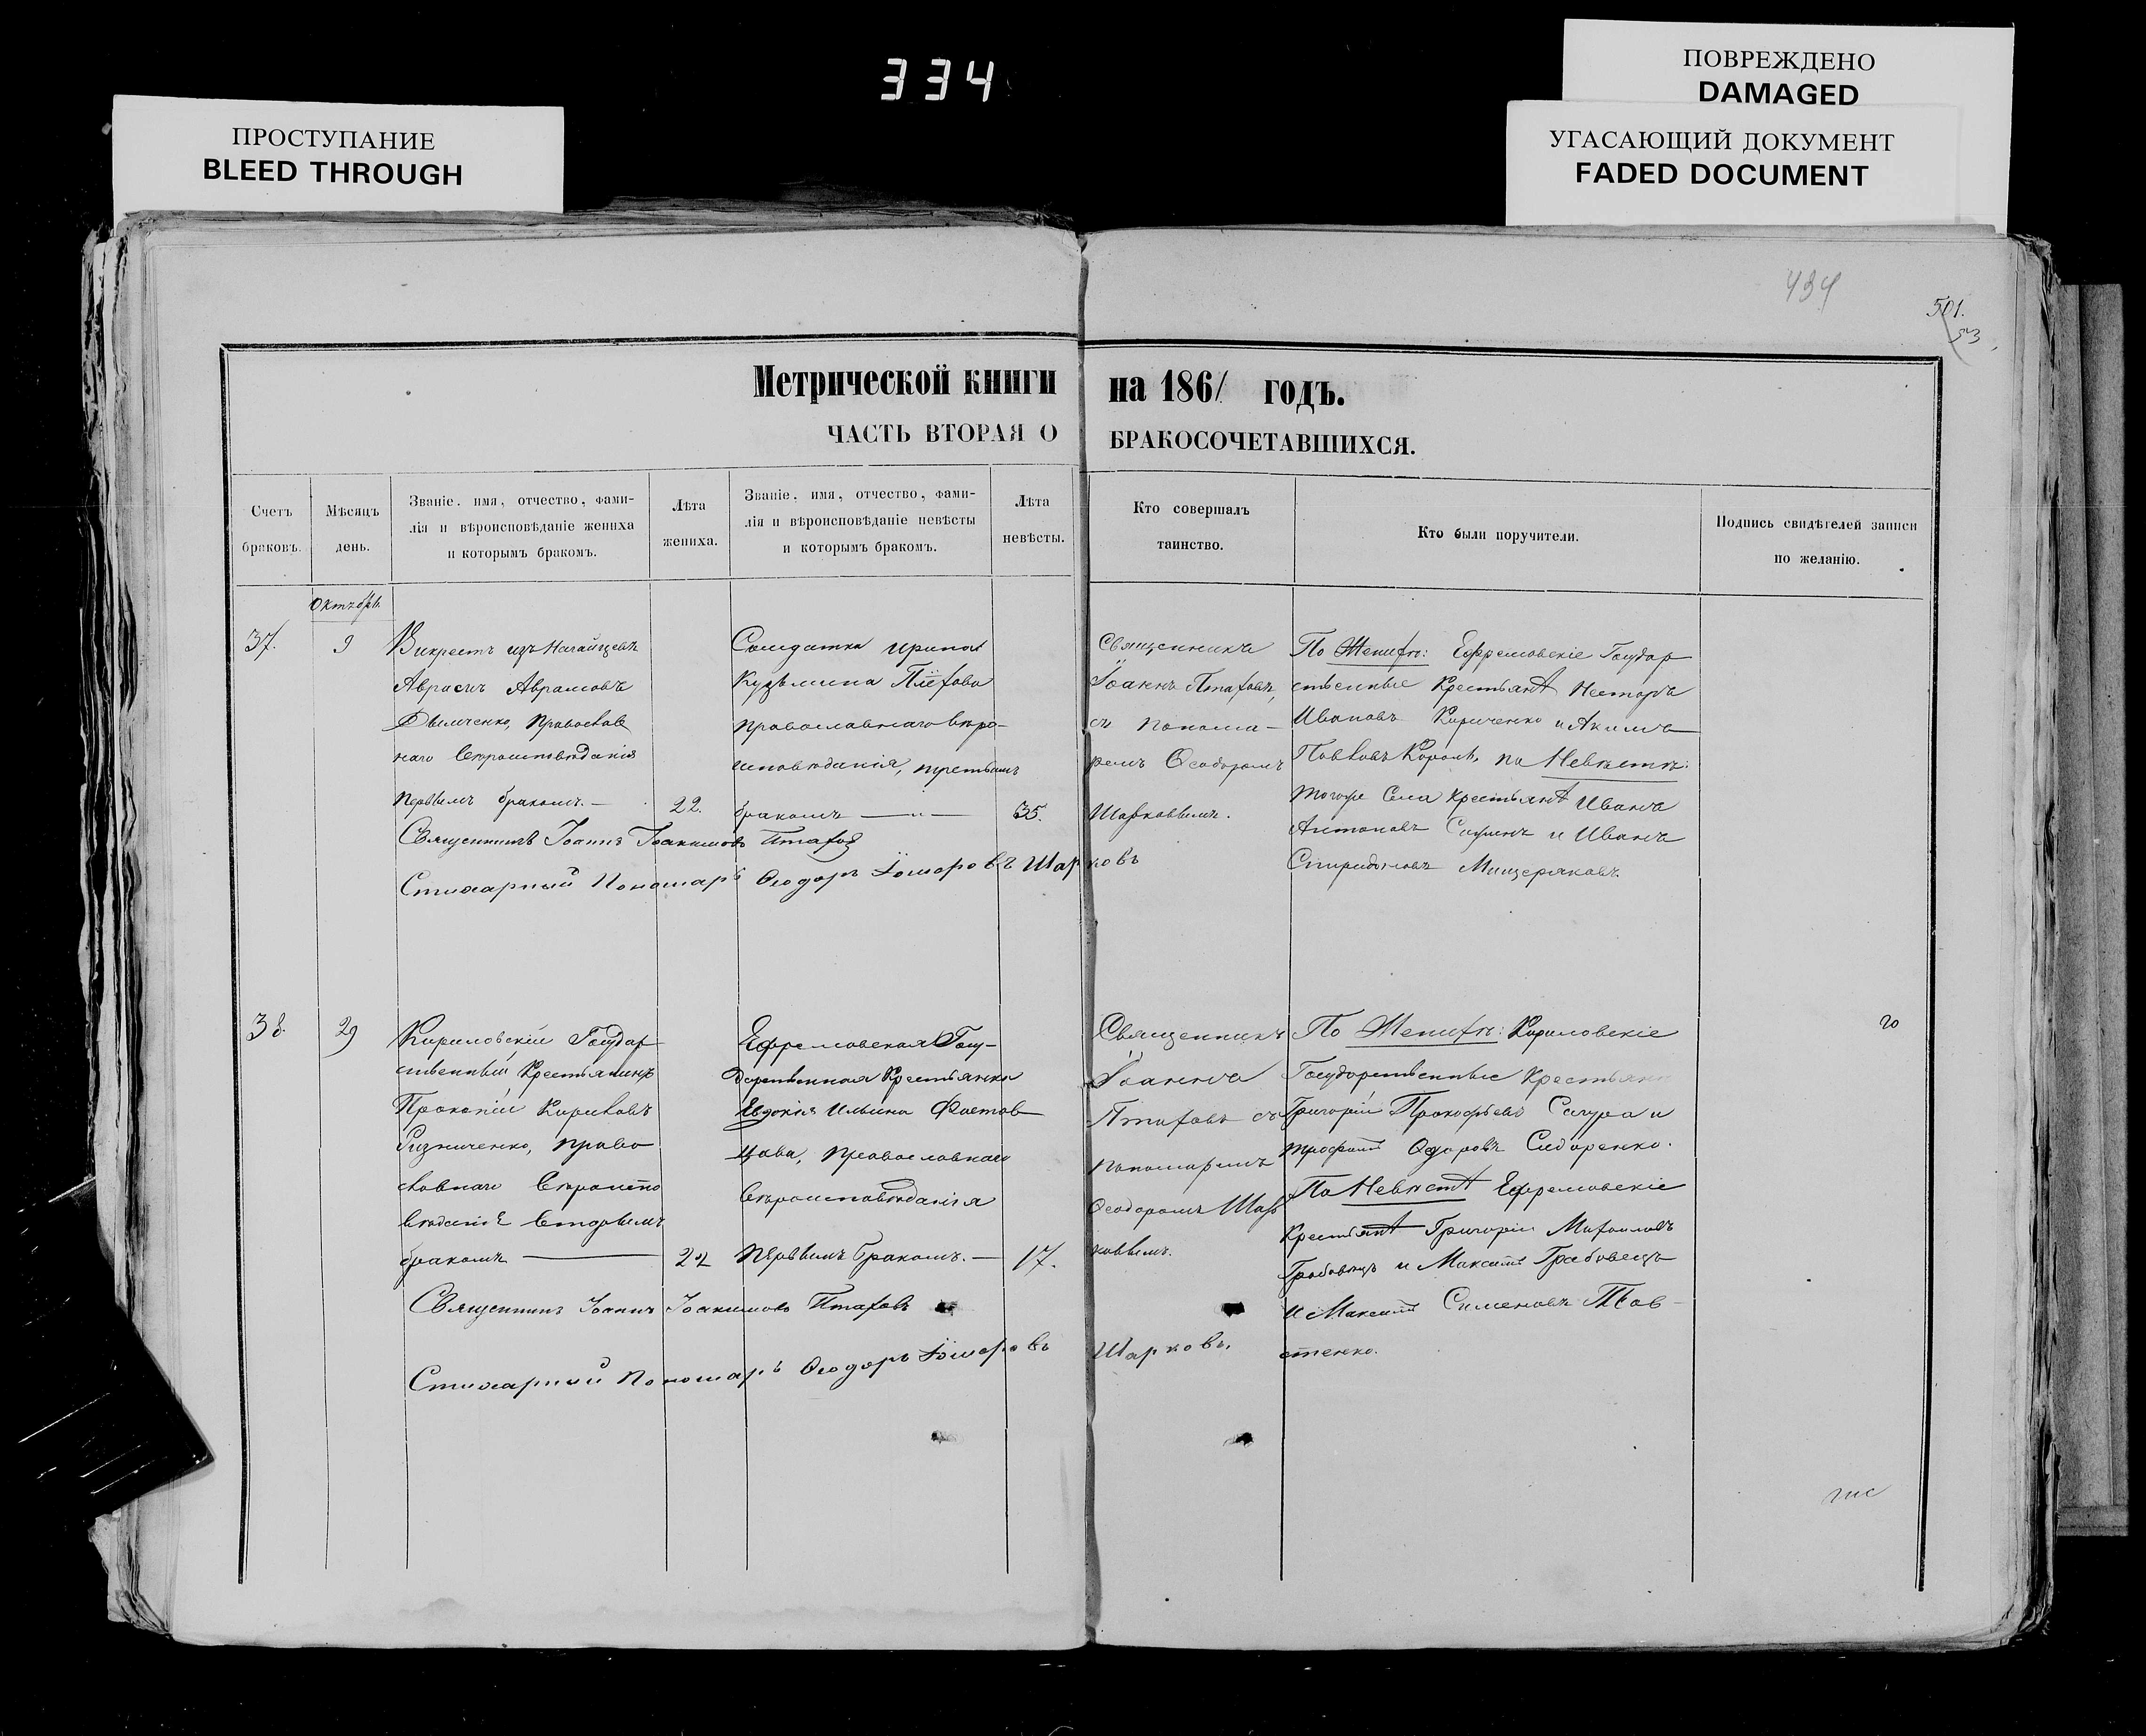 334
ПОВРЕЖДЕНО
DAMAGED
УГАСАЮЩИЙ ДОКУМЕНТ
FADED DOCUMENT
ПРОСТУПАНИЕ
BLEED THROUGH
434
501.
53
Метрической книги на 1861 годъ.
ЧАСТЬ ВТОРАЯ О БРАКОСОЧЕТАВШИХСЯ.
Счетъ
браковъ.
Мѣсяцъ
день.
Званіе, имя, отчество, фами-
лія и вѣроисповѣданіе жениха
и которымъ бракомъ.
Лѣта
жениха.
Званіе, имя, отчество, фами-
лія и вѣроисповѣданіе невѣсты
и которымъ бракомъ.
Лѣта
невѣсты.
Кто совершалъ
таинство.
Кто были поручители.
Подпись свидѣтелей записи
по желанію.
Октябрь
37.
9
Викрестъ изъ Нагайцевъ
Аврамъ Аврамовъ
Дымченко, Православ
наго Вѣроисповѣданія
первымъ бракомъ. —
22.
Солдатка Ирина
Кузьмина
православнаго вѣро-
исповѣданія, третьимъ
бракомъ — " —
35.
Священникъ
Іоаннъ Птаховъ,
съ понома-
ремъ Ѳеодоромъ
Шарковымъ.
По Женихѣ: Ефремовскіе Государ
ственные Крестьяне Несторъ
Ивановъ Кириченко и Акимъ
Павловъ Король, по Невѣстѣ:
тогоже Села Крестьяне Иванъ
Антоновъ и Иванъ
Спиридоновъ Мищеряковъ.
Священникъ Іоаннъ Іоакимовъ Птаховъ
Стихарный Пономарь Ѳеодоръ Шарковъ
38.
29
Кириловскій Государ
ственный Крестьянинъ
Прокопій Кириловъ
Ризниченко, право
славнаго Вѣроиспо
вѣданія Вторымъ
бракомъ —
22
Ефремовская Госу-
дарственная Крестьянка
Евдокія Ильина Фастов
цова, Православнаго
Вѣроисповѣданія
Первымъ Бракомъ. —
17.
Священникъ
Іоаннъ
Птаховъ съ
пономаремъ
Ѳеодоромъ Шар
ковымъ.
По Женихѣ: Кириловскіе
Государственные Крестьяне
Григорій Прокофьевъ Сагура и
Трофимъ Ѳедоровъ Сидоренко.
По Невѣстѣ Ефремовскіе
Крестьяне Григорій Михаиловъ
Грабовецъ и Максимъ Грабовецъ
и Максимъ Сименовъ Тов-
стенко.
Священникъ Іоаннъ Іоакимовъ Птаховъ
Стихарный Пономарь Ѳеодоръ Шарковъ.